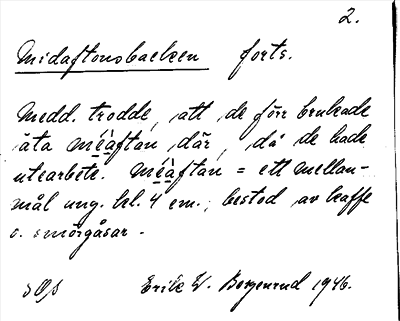 2.
Midaftonsbacken forts.
Medd. trodde, att de förr brukade
äta méàftan där, då de hade
utearbete. Méàftan = ett mellan-
mål ung. kl. 4 em.; bestod av kaffe
o. smörgåsar.
Erik W. Bergenrud 1946.